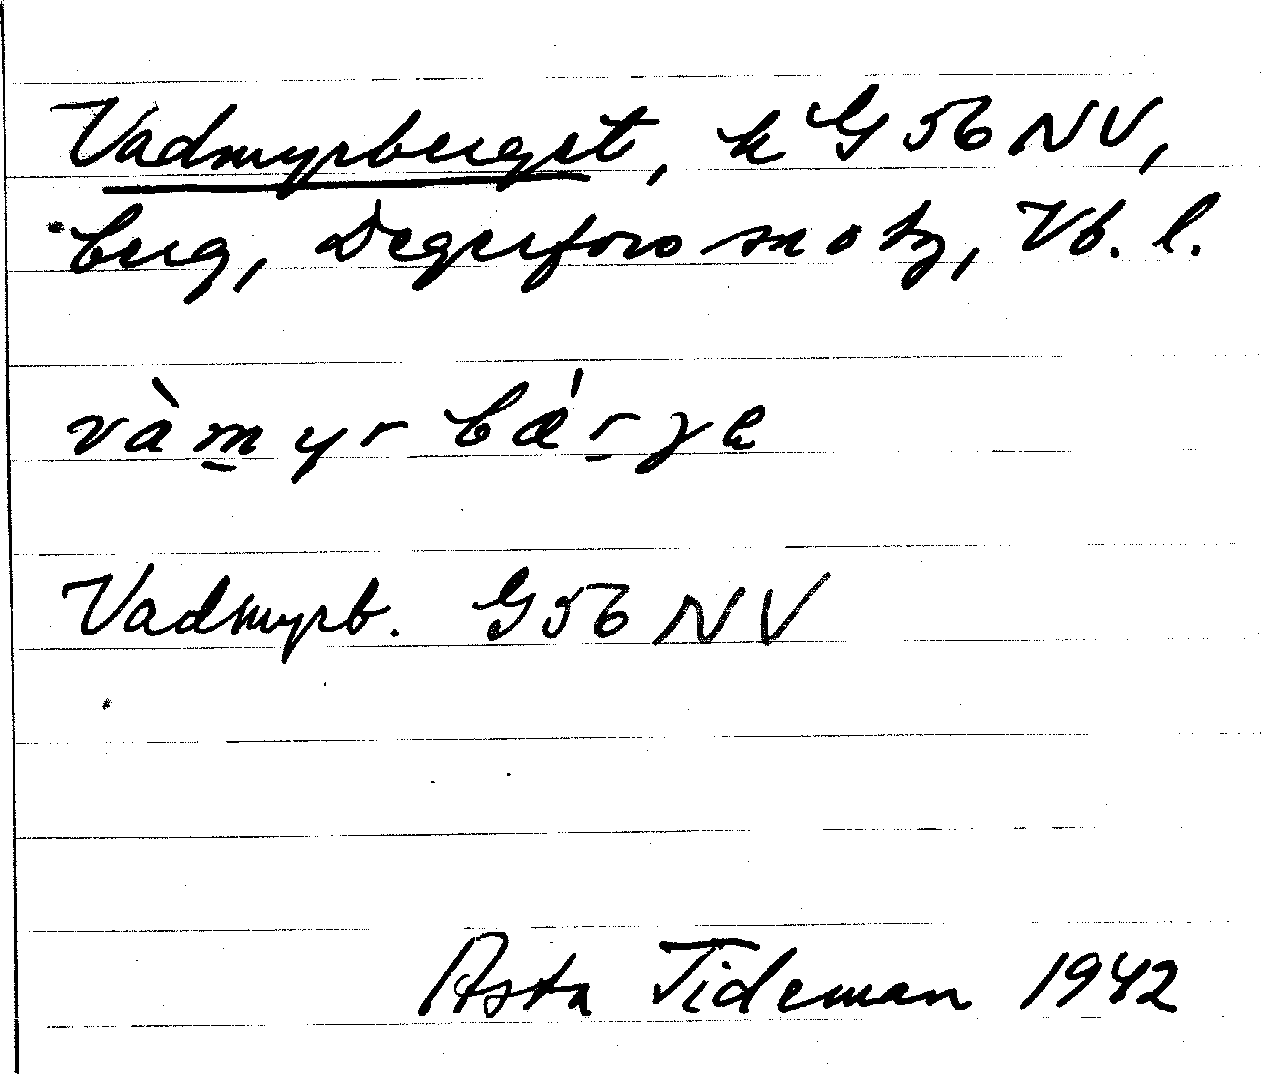 Vadmyrberget, k G 56 NV,
berg, Degerfors sn o tg, Vb. l.
vàm̲yrbǽr̲ɣe
Vadmyrb. G 56 NV
Asta Tideman 1942